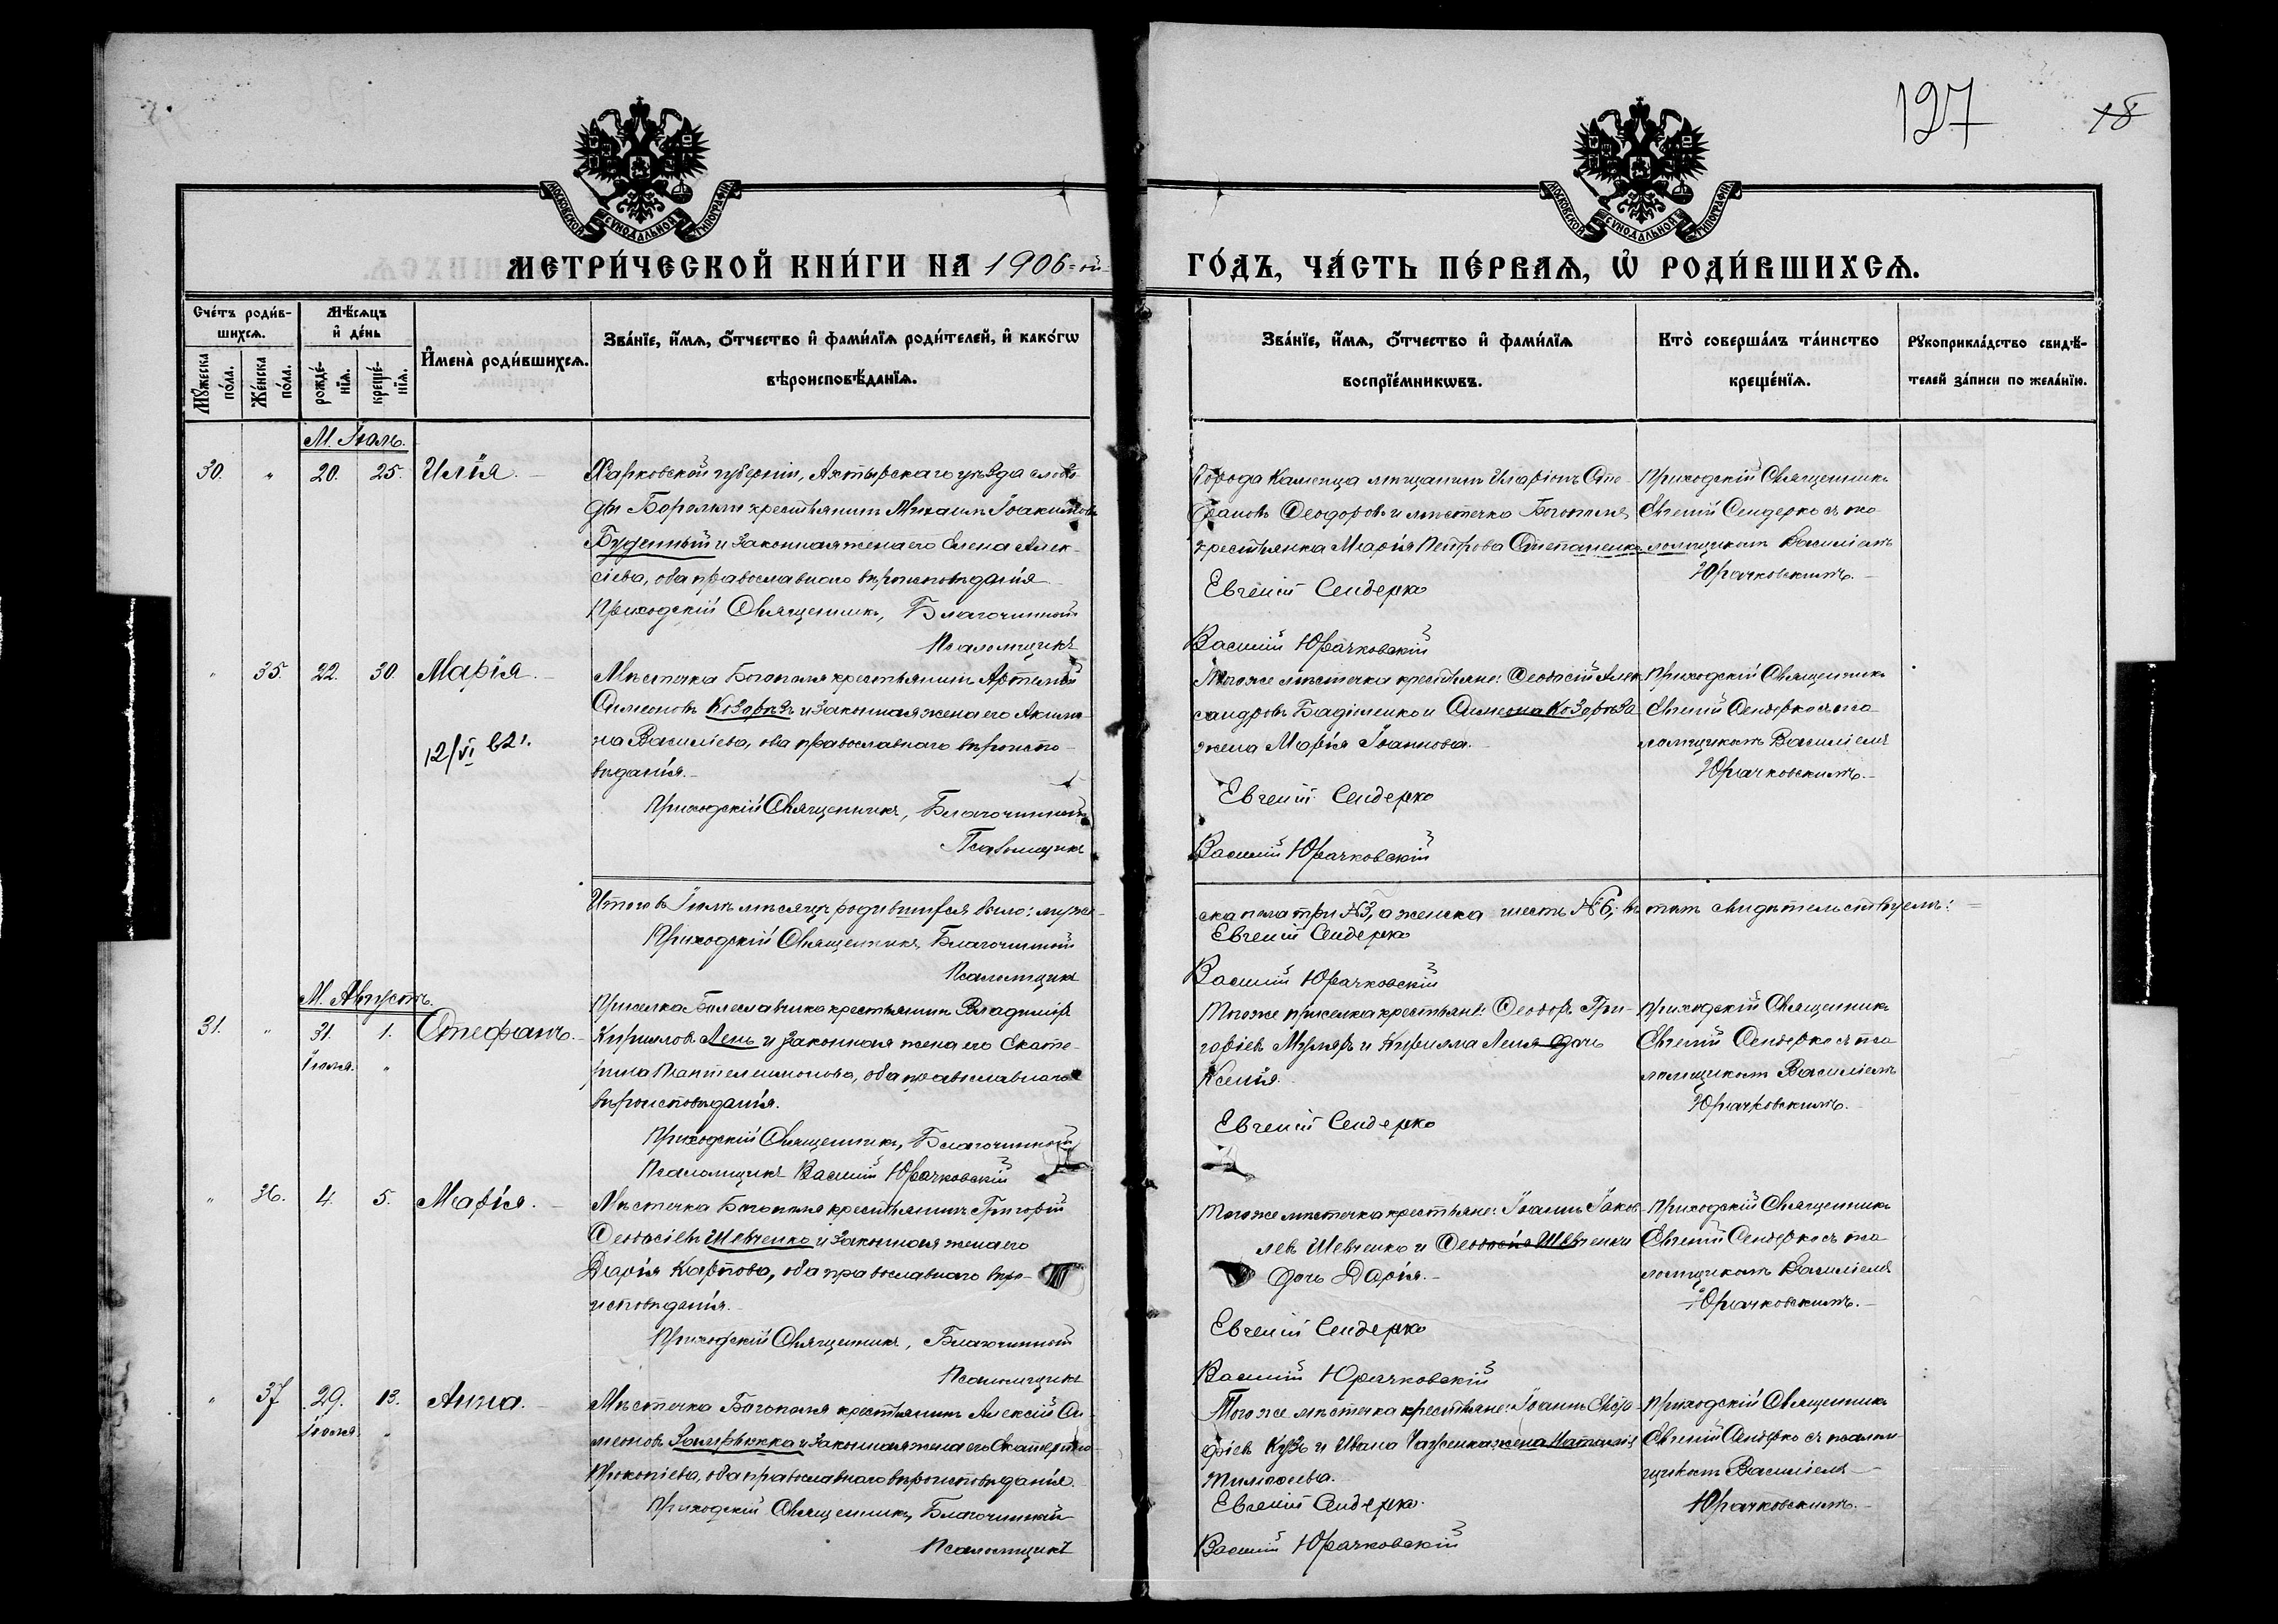 127
18
МОСКОВСКОЙ СѴНОДАЛЬНОЙ ТИПОГРАФІИ
МОСКОВСКОЙ СѴНОДАЛЬНОЙ ТИПОГРАФІИ
МЕТРИ́ЧЕСКОЙ КНИ́ГИ НА 1906=ой
ГО́ДЪ, ЧА́СТЬ ПЕ́РВАѦ, Ѡ҆ РОДИ́ВШИХСѦ.
Сче́тъ роди́в-
шихсѧ.
Мꙋ́жеска по́ла.
Же́нска по́ла.
Мѣ́сѧцъ
и҆ де́нь
рожде́-
нїѧ.
креще́-
нїѧ.
И҆мена̀ роди́вшихсѧ.
Зва́нїе, и҆́мѧ, ѻ҆́тчество и҆ фами́лїѧ роди́телей, и҆ како́гѡ
вѣроисповѣ́данїѧ.
Зва́нїе, и҆́мѧ, ѻ҆́тчество и҆ фами́лїѧ
воспрїе́мникѡвъ.
Кто̀ соверша́лъ та́инство
креще́нїѧ.
Рꙋкоприкла́дство свидѣ́-
телей за́писи по жела́нїю.
М. Іюль.
30. " 20. 25. Илія.
Харьковской губерніи, Ахтырскаго уѣзда слобо-
ды Боромли крестьянинъ Михаилъ Іоакимовъ
и законная жена его Елена Алек-
сіева, оба православнаго вѣроисповѣданія
Приходскій Священникъ, Благочинный
Псаломщикъ
Города Каменца мѣщанинъ Иларіонъ Сте-
фановъ Ѳеодоровъ и мѣстечка Богополя
крестьянка Марія Петрова Степаненко
Евгеній Сендерко
Василій Юрачковскій
Приходскій Священникъ
Евгеній Сендерко съ пса
ломщикомъ Василіемъ
Юрачковскимъ.
" 35. 22. 30. Марія.
12/VI 21.
Мѣстечка Богополя крестьянинъ Артемій
Симеоновъ Козорѣзъ и законная жена его Акили-
на Василіева, оба православнаго вѣроиспо-
вѣданія.
Приходскій Священникъ, Благочинный
Псаломщикъ
Того же мѣстечка крестьяне: Ѳеодосій Алек
сандровъ и Симеона Козорѣза
жена Марія Іоаннова.
Евгеній Сендерко
Василій Юрачковскій
Приходскій Священникъ
Евгеній Сендерко съ пса
ломщикомъ Василіемъ
Юрачковскимъ.
Итого въ Іюлѣ мѣсяцѣ родившихся было: муже-
ска пола три №3, а женска шесть №6; въ томъ свидѣтельствуемъ:
Приходскій Священникъ, Благочинный
Евгеній Сендерко
Псаломщикъ
Василій Юрачковскій
М. Августъ.
31. " 31. 1. Стефанъ.
Іюля. "
Приселка Болеславчика крестьянинъ Владиміръ
Кирилловъ Лень и законная жена его Екате-
рина Пантелеимонова, оба православнаго
вѣроисповѣданія.
Приходскій Священникъ, Благочинный
Псаломщикъ Василій Юрачковскій
Того же приселка крестьяне: Ѳеодоръ Гри-
горіевъ Муляръ и Кирилла Леня дочь
Ксенія.
Евгеній Сендерко
Приходскій Священникъ
Евгеній Сендерко съ пса
ломщикомъ Василіемъ
Юрачковскимъ.
" 36. 4. 5. Марія.
Мѣстечка Богополя крестьянинъ Григорій
Ѳеодосіевъ Шевченко и законная жена его
Дарія Карпова, оба православнаго вѣро-
исповѣданія.
Приходскій Священникъ, Благочинный
Псаломщикъ
Того же мѣстечка крестьяне: Іоаннъ Іаков
левъ Шевченко и Ѳеодосія Шевченки
дочь Дарія.
Евгеній Сендерко
Василій Юрачковскій
Приходскій Священникъ
Евгеній Сендерко съ пса
ломщикомъ Василіемъ
Юрачковскимъ.
" 37 29. 13. Анна.
Іюля. "
Мѣстечка Богополя крестьянинъ Алексій Си-
меоновъ и законная жена его Екатерина
Прокопіева, оба православнаго вѣроисповѣданія.
Приходскій Священникъ, Благочинный
Псаломщикъ
Того же мѣстечка крестьяне: Іоаннъ
и Ивана жена Наталія
Тимоѳеева.
Евгеній Сендерко.
Василій Юрачковскій
Приходскій Священникъ
Евгеній Сендерко съ псалом
щикомъ Василіемъ
Юрачковскимъ.